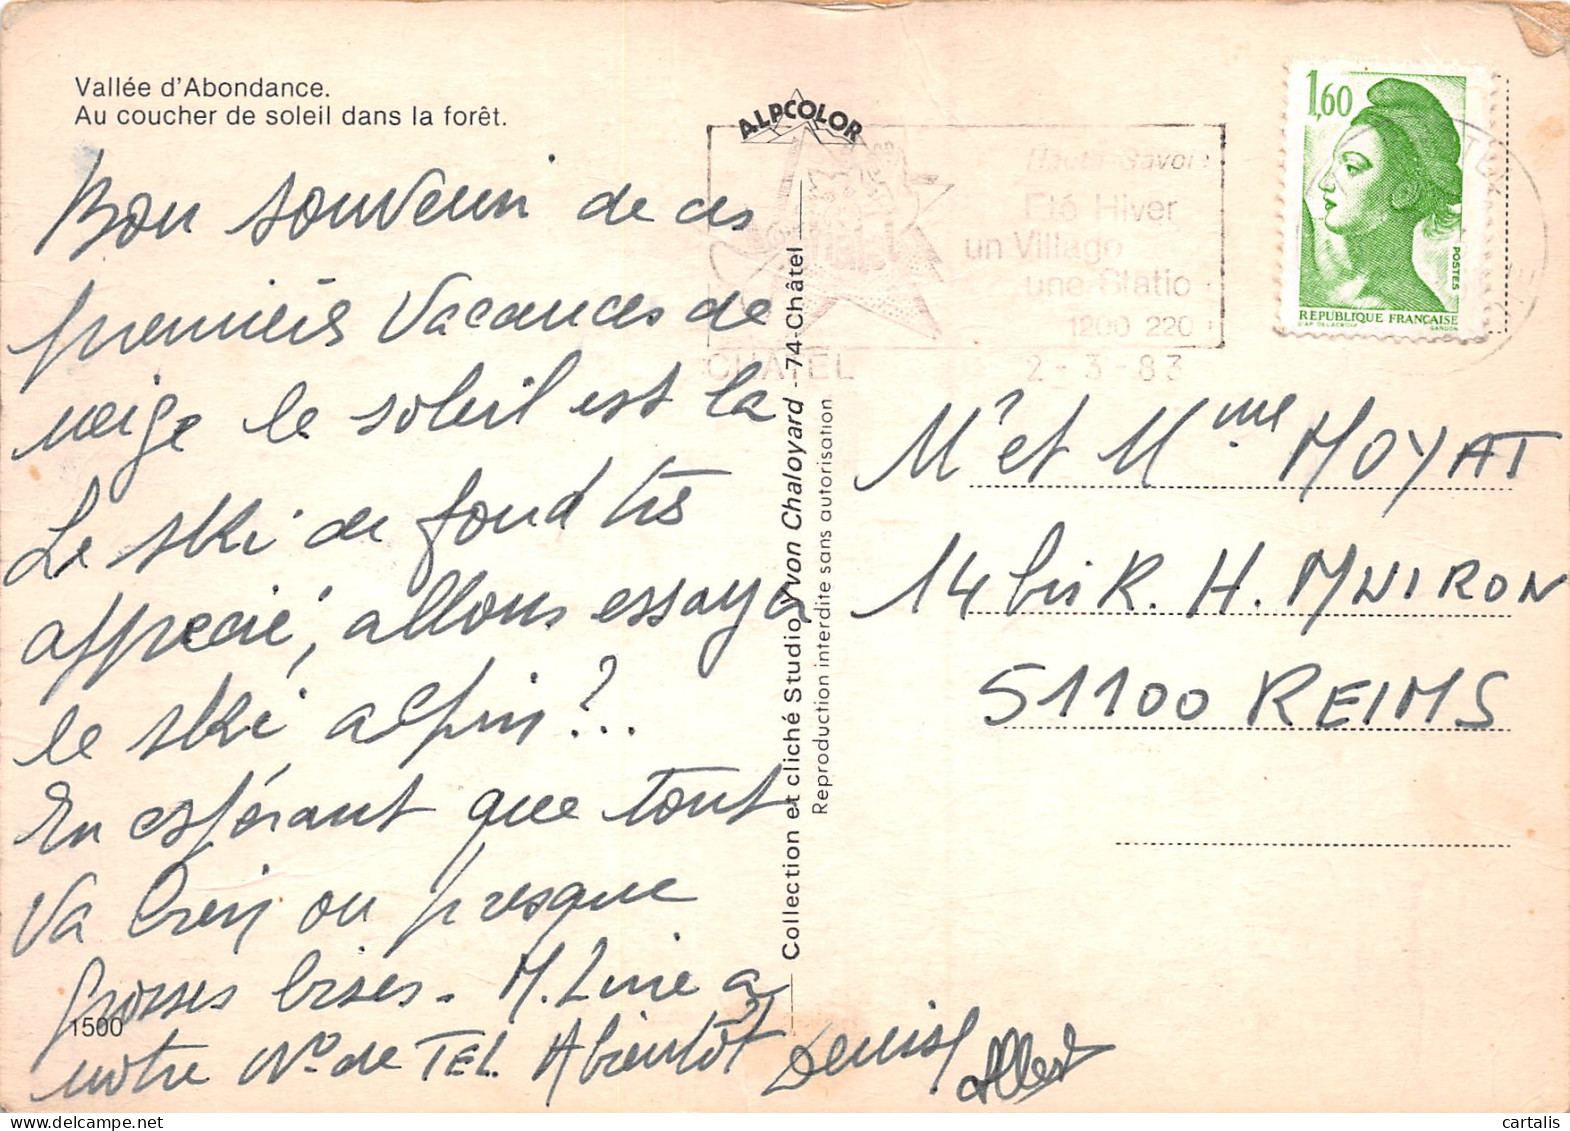 Vallée d'Abondance.
Au coucher de soleil dans la forêt.
Bon souvenir de ces
premières Vacances de
neige le soleil est la
Le ski de fond très
apprecié, allons essayer
le ski alpin ?..
En espérant que tout
Va bien ou presque
grosses bises. M. Line a
notre N° de TEL. A bientôt Denise
Albert
1500
ALPCOLOR
Haute Savoie
Eté Hiver
un Village
une Statio
1200 220
CHATEL 2-3-83
Collection et cliché Studio Yvon Chaloyard - 74-Châtel
Reproduction interdite sans autorisation
1,60
POSTES
REPUBLIQUE FRANÇAISE
D'AP. DELACROIX GANDON
Mr et Mme MOYAT
14 bis R. H. MUIRON
51100 REIMS
cartalis